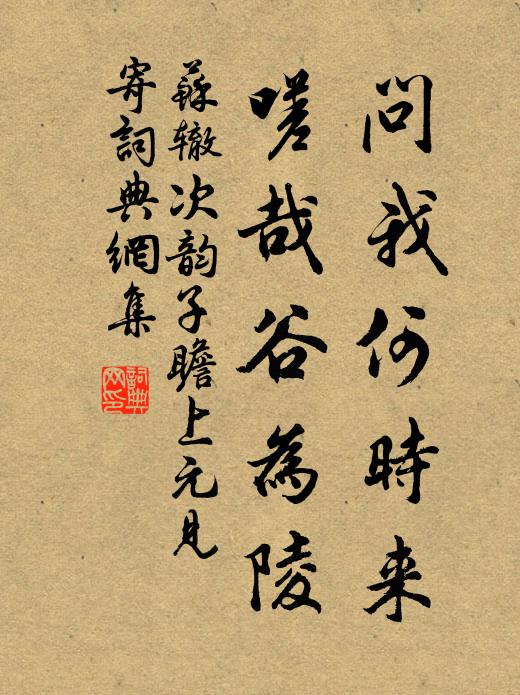 問我何時来
嗟哉谷為陵
蘇辙次韵子瞻上元見
寄詞典網集
詞典
网印